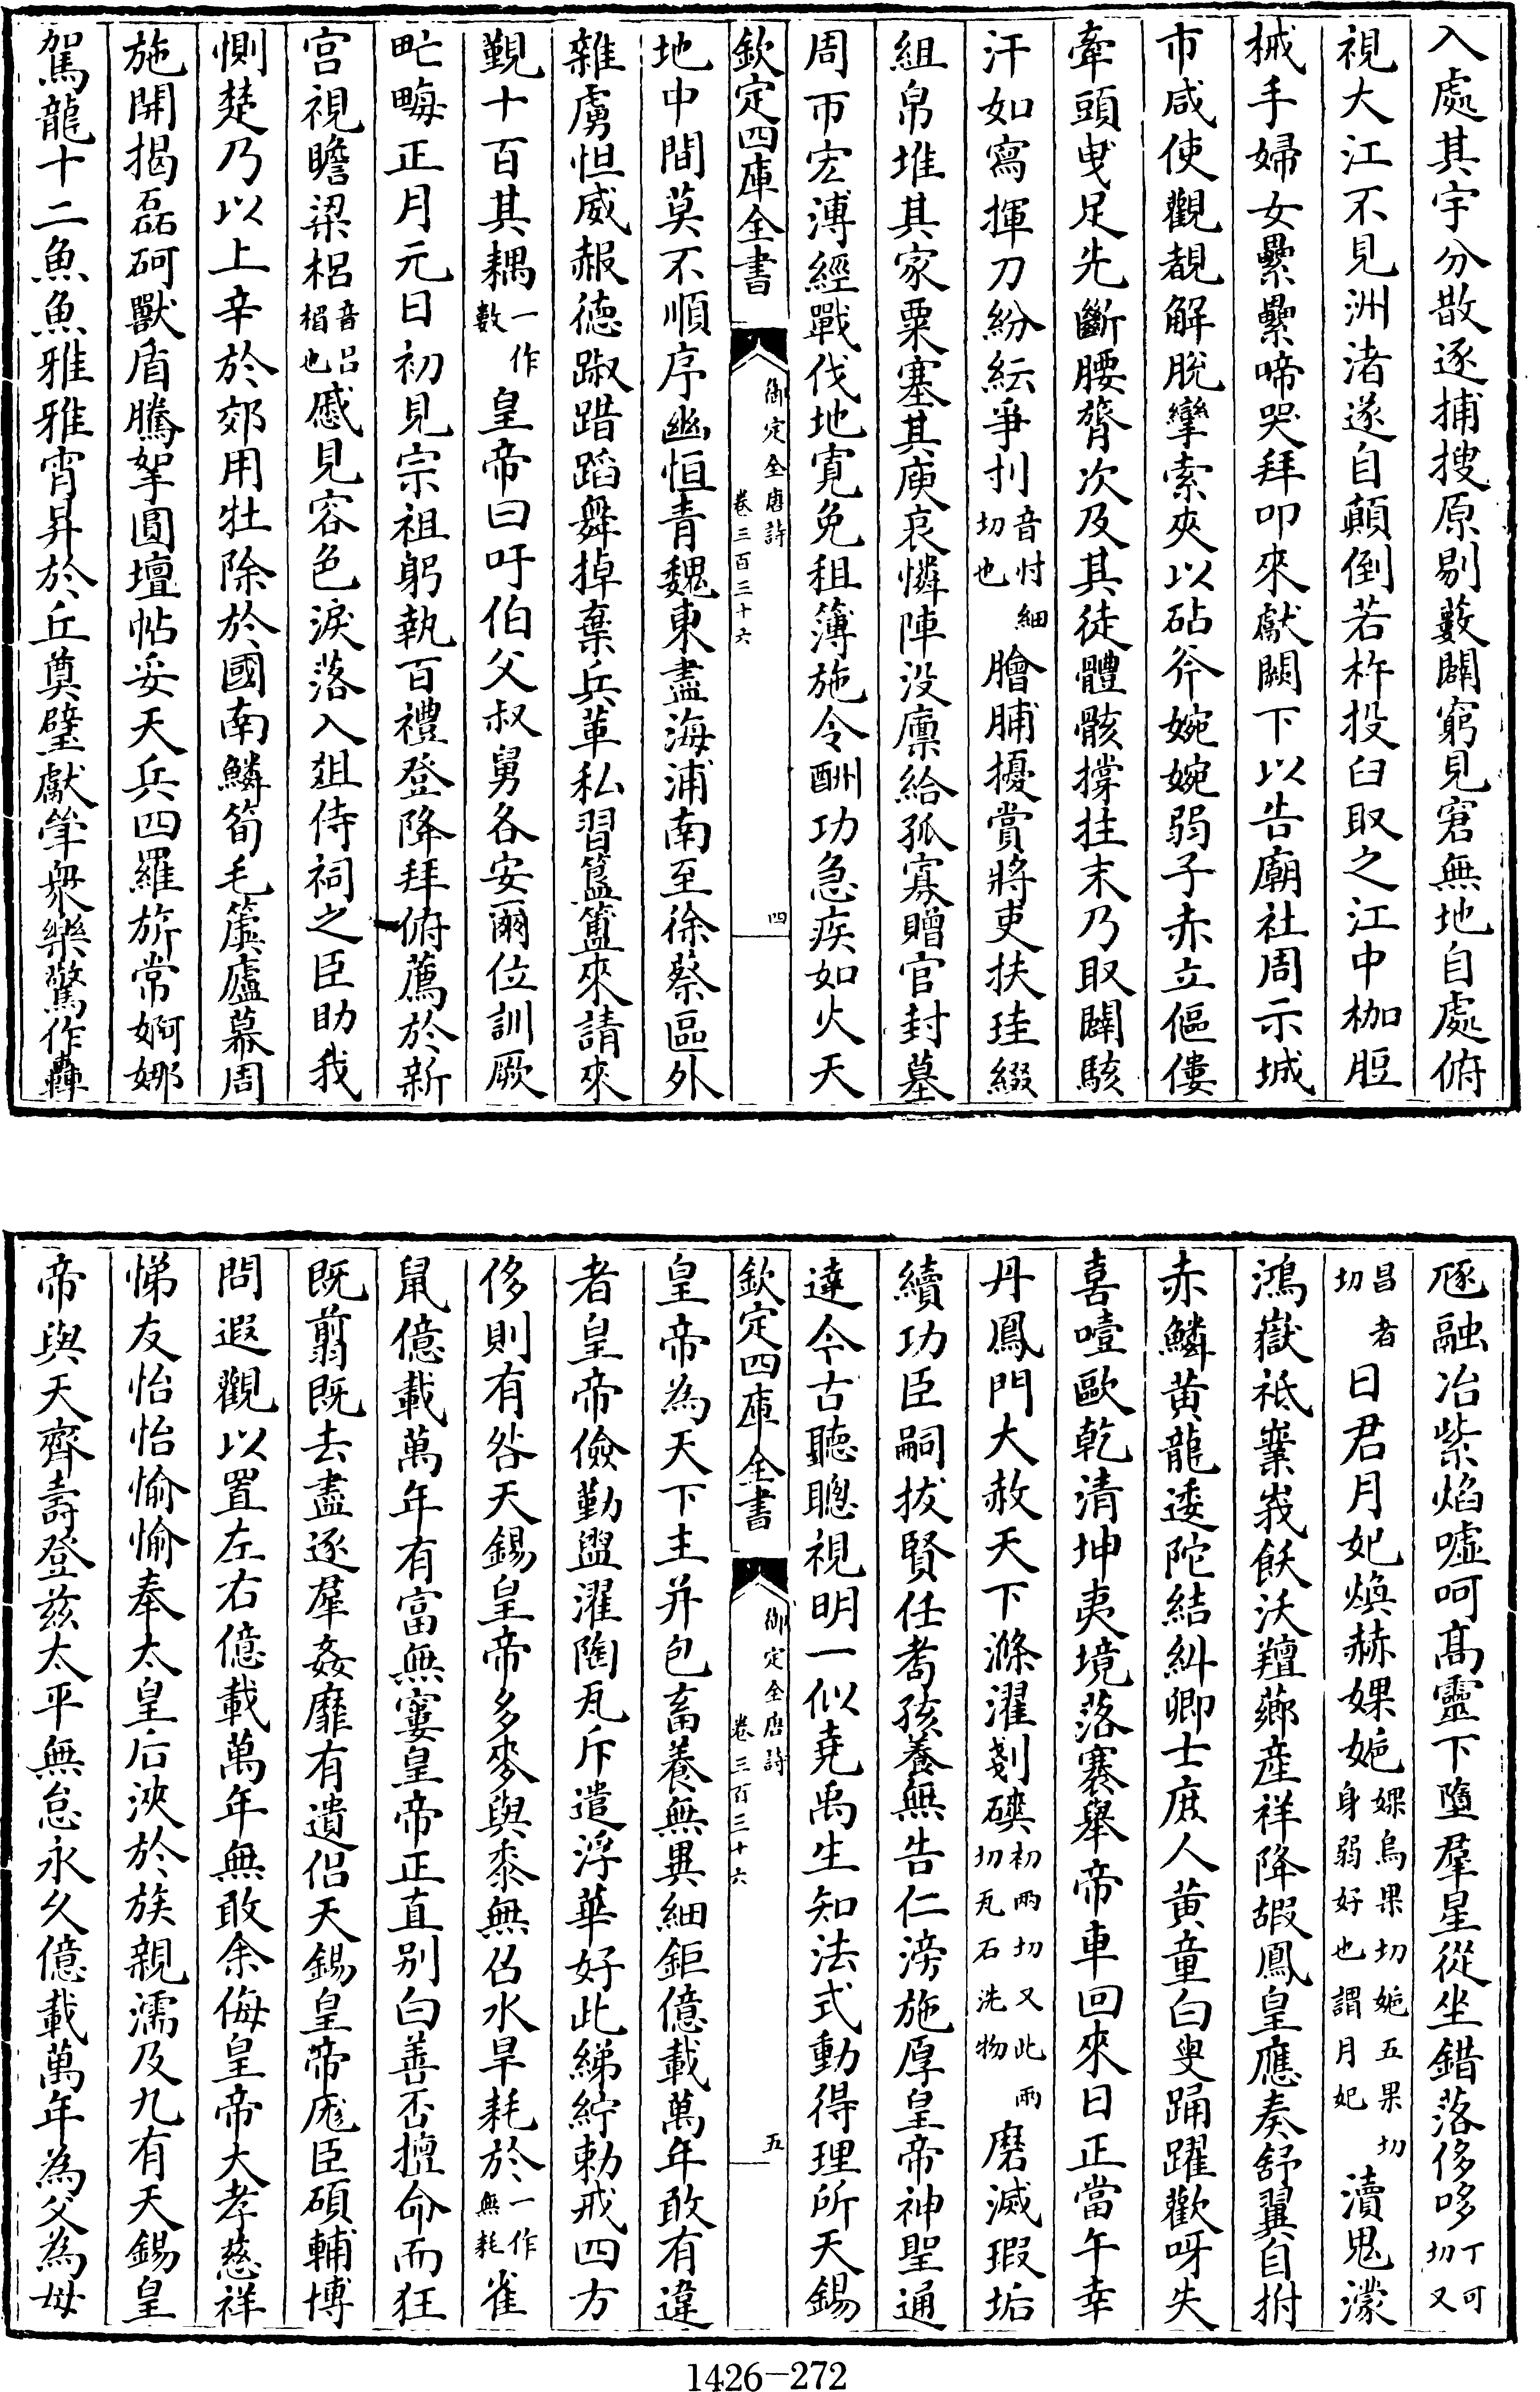 入處其宇分散逐捕搜原剔藪闢窮見窘無地自處俯
視大江不見洲渚遂自顛倒若杵投臼取之江中枷脰
械手婦女纍纍啼哭拜叩來獻闕下以告廟社周示城
市咸使觀覩解脫攣索夾以砧斧婉婉弱子赤立傴僂
牽頭曳足先斷腰膂次及其徒體骸撐拄末乃取闢駭
汗如寫揮刀紛紜爭刌音忖細切也膾脯擾賞將吏扶珪綴
組帛堆其家粟塞其庾哀憐陣没廪給孤寡贈官封墓
周帀宏溥經戰伐地寛免租簿施令酬功急疾如火天
欽定四庫全書 御定全唐詩 卷三百三十六 四
地中間莫不順序幽恒青魏東盡海浦南至徐蔡區外
雜虜怛威赧德踧踖蹈舞掉棄兵革私習簋簠來請來
覲十百其耦一作數皇帝曰吁伯父叔舅各安爾位訓厥
甿畮正月元日初見宗祖躬執百禮登降拜俯薦於新
宫視瞻梁梠音吕楣也慼見容色淚落入俎侍祠之臣助我
惻楚乃以上辛於郊用牡除於國南鱗筍毛簴廬幕周
施開揭磊砢獸盾騰拏圓壇帖妥天兵四羅旂常婀娜
駕龍十二魚魚雅雅宵昇於丘奠璧獻斝衆樂驚作轟
豗融冶紫焰嘘呵高靈下墮羣星從坐錯落侈哆丁可切又
昌者切日君月妃煥赫婐㛂婐烏果切㛂五果切身弱好也謂月妃瀆鬼濛
鴻嶽祗嶪峩飫沃羶薌産祥降嘏鳳皇應奏舒翼自拊
赤鱗黄龍逶陀結糾卿士庶人黄童白叟踊躍歡呀失
喜噎歐乾清坤夷境落褰舉帝車回來日正當午幸
丹鳳門大赦天下滌濯剗磢初兩切又此兩切瓦石洗物磨滅瑕垢
續功臣嗣拔賢任耇孩養無告仁滂施厚皇帝神聖通
達今古聽聰視明一似堯禹生知法式動得理所天錫
欽定四庫全書 御定全唐詩 卷三百三十六 五
皇帝為天下主并包畜養無異細鉅億載萬年敢有違
者皇帝儉勤盥濯陶瓦斥遣浮華好此綈紵勅戒四方
侈則有咎天錫皇帝多麥與黍無召水旱耗於一作無耗雀
鼠億載萬年有富無寠皇帝正直别白善否擅命而狂
既翦既去盡逐羣姦靡有遺侣天錫皇帝厖臣碩輔博
問遐觀以置左右億載萬年無敢余侮皇帝大孝慈祥
悌友怡怡愉愉奉太皇后浹於族親濡及九有天錫皇
帝與天齊壽登兹太平無怠永久億載萬年為父為母
1426-272